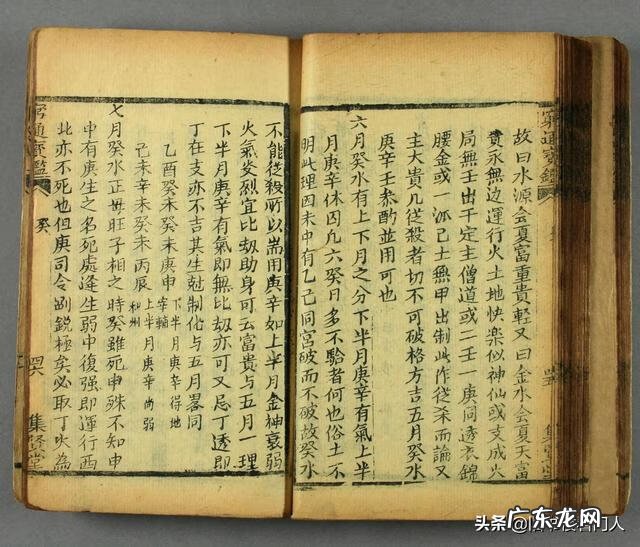 故曰水源會夏富重貴輕又曰金水會夏天富
貴永無邊運行火土地快樂似神仙或支成火
局無壬出干定主僧道或二壬一庚同透衣錦
腰金或一派己土無甲出制此作從杀而論又
主大貴凡從殺者切不可破格方吉五月癸水
庚辛壬參酌並用可也
六月癸水有上下月之分下半月庚辛有氣上半
月庚辛休囚凡六癸日多不驗者何也俗士不
明此理因未中有乙己同宮破而不破故癸水
窮通寶鑑
集賢堂
不能從殺所以耑用庚辛如上半月金神衰弱
火氣炎烈宜比刼助身可云富貴与五月一理
下半月庚辛有氣即無比刼亦可又忌丁透即
丁在支亦不吉其生尅制化与五月畧同
乙酉癸未癸未庚申 下半月庚辛得地 宰輔
己未辛未癸未丙辰 上半月庚辛尚弱 和州
七月癸水正母旺子相之時癸雖死申殊不知申
中有庚生之名死處逢生弱中復强即運行西
此亦不死也但庚司令剛銳極矣必取丁火為
窮通寶鑑
癸
集賢堂
头条
广东龙网